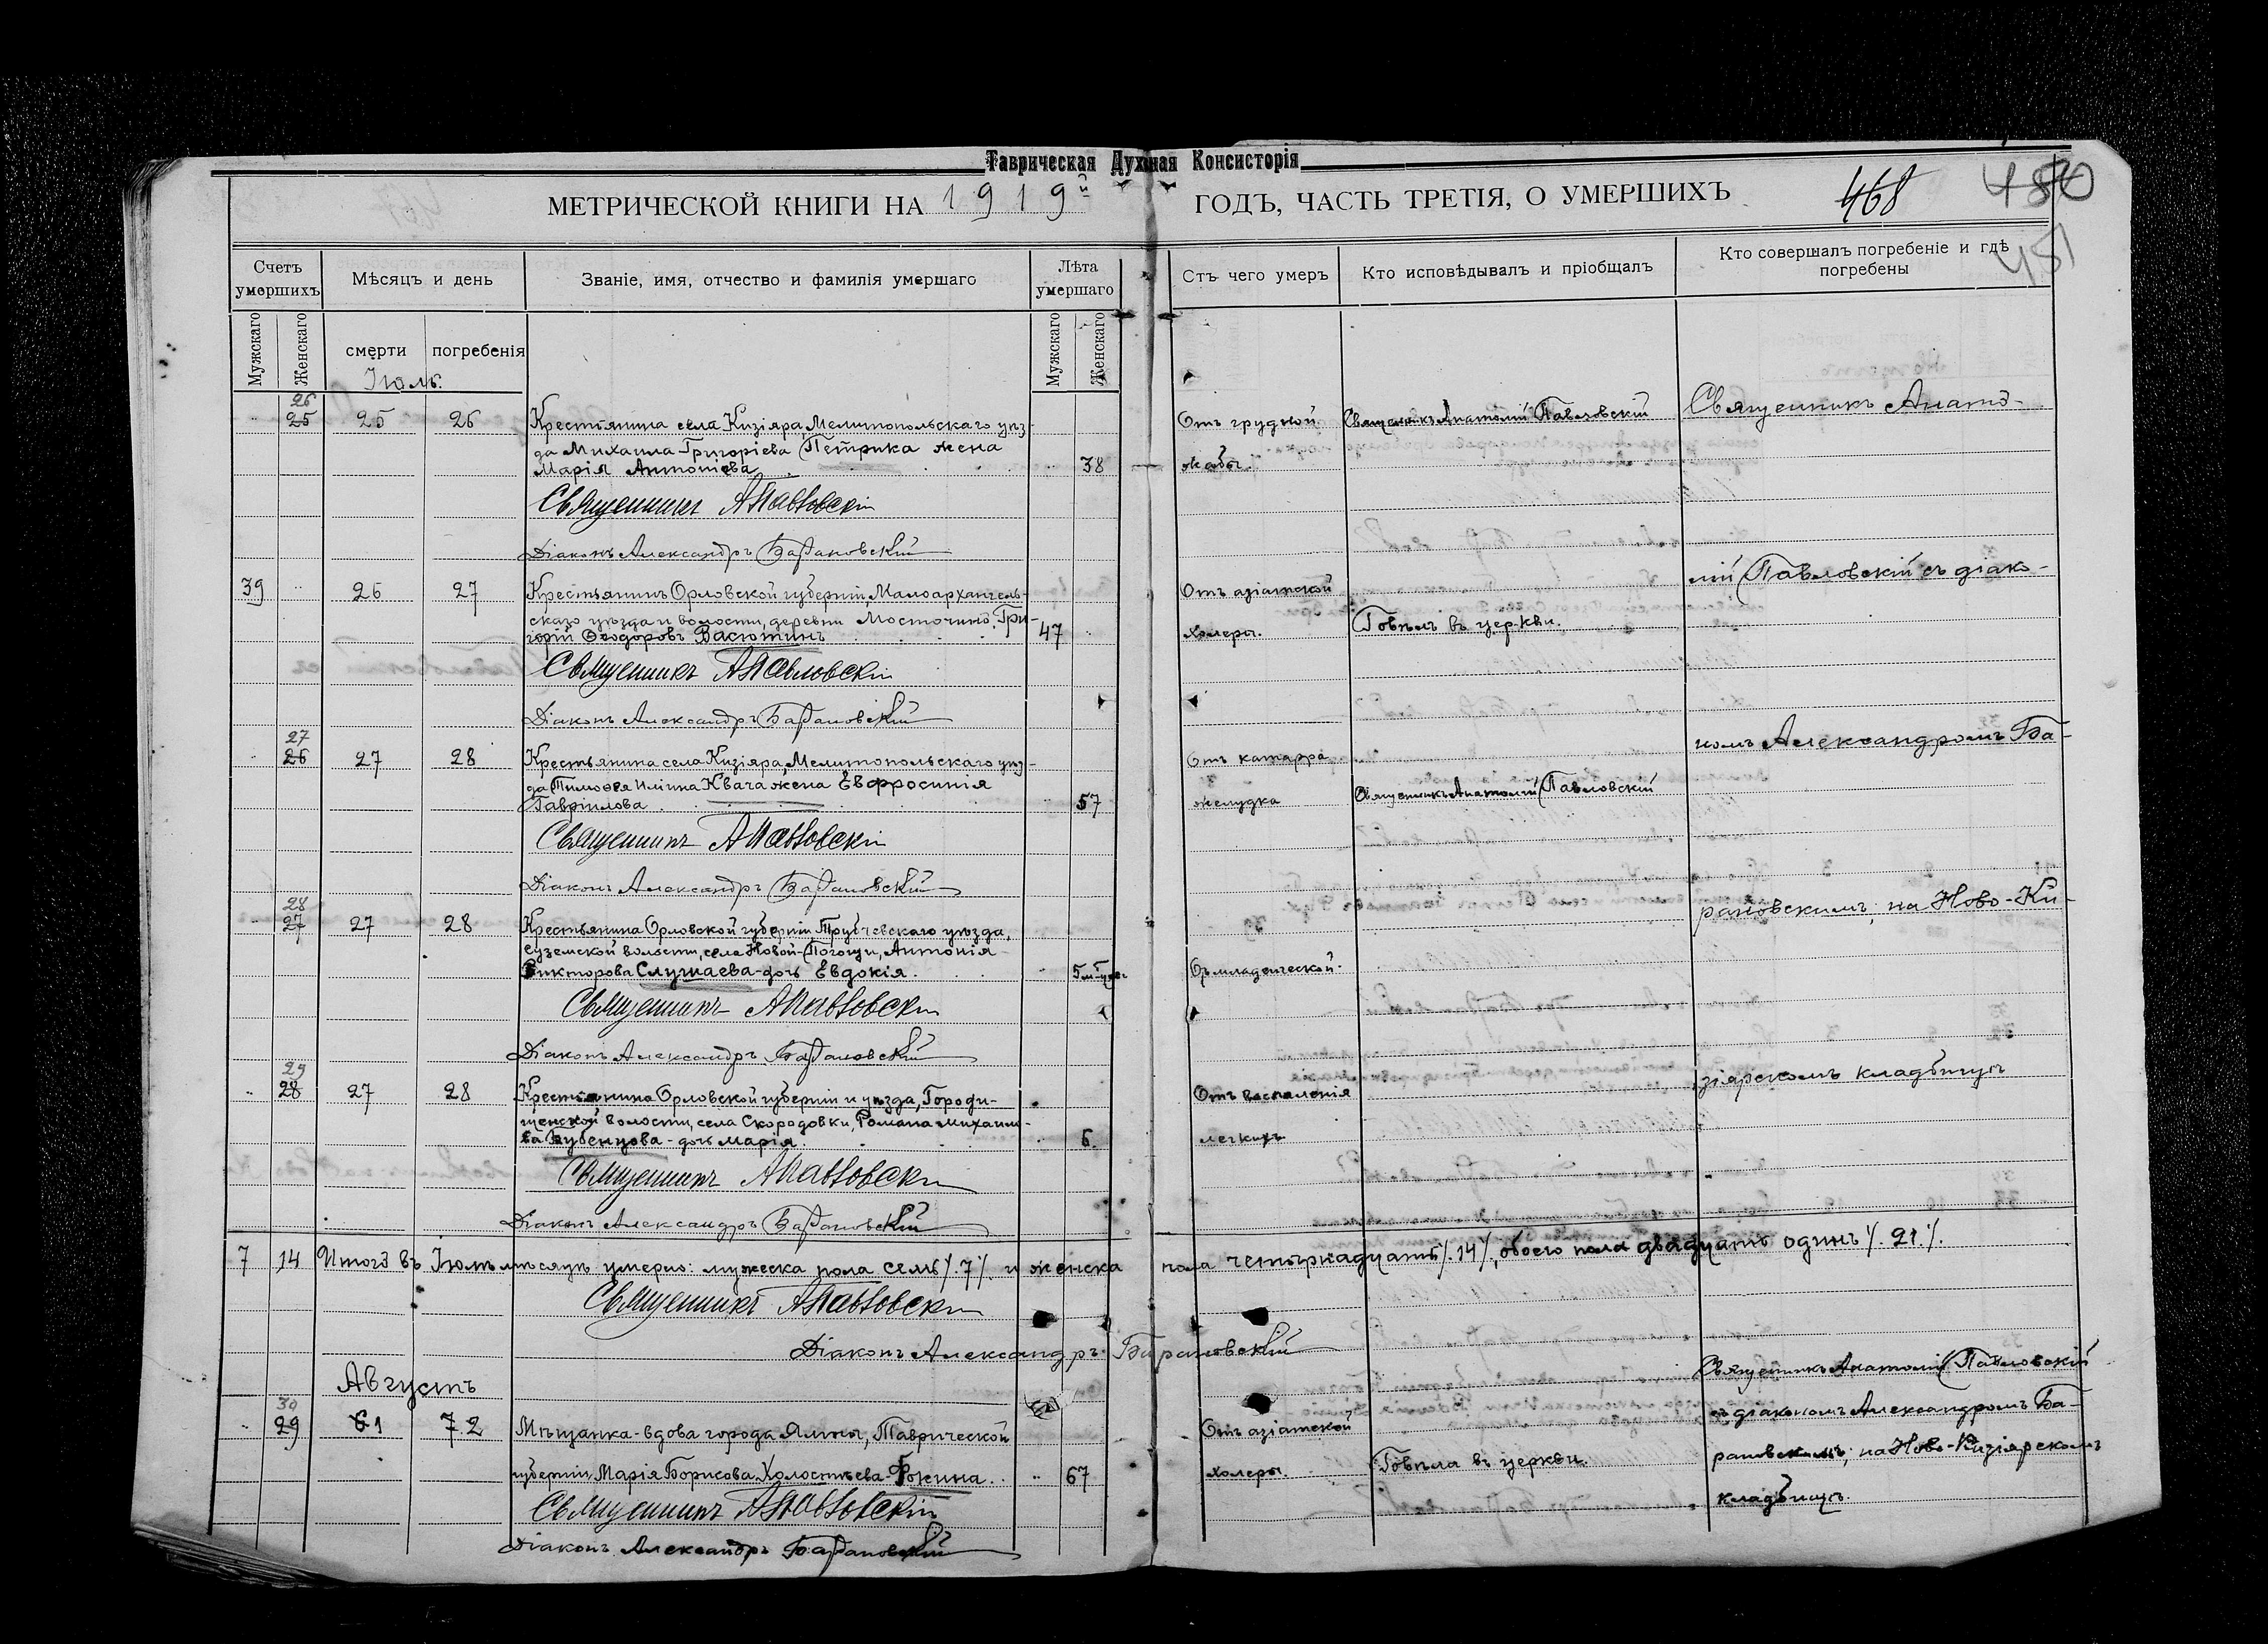 Таврическая Духовная Консисторія
МЕТРИЧЕСКОЙ КНИГИ НА 1919й ГОДЪ, ЧАСТЬ ТРЕТІЯ, О УМЕРШИХЪ
468 480
481
Счетъ умершихъ
Мѣсяцъ и день
Званіе, имя, отчество и фамилія умершаго
Лѣта умершаго
Отъ чего умеръ
Кто исповѣдывалъ и пріобщалъ
Кто совершалъ погребеніе и гдѣ погребены
Мужскаго
Женскаго
смерти
погребенія
Мужскаго
Женскаго
Іюль.
26
25 25 26 Крестьянина села Кизіяра, Мелитопольскаго уѣз-
да Михаила Григоріева Петрика жена
Марія Антоніева 38
Отъ грудной
жабы.
Священникъ Анатолій Павловскій
Священникъ Анато-
Священникъ АПавловскій
Діаконъ Александръ Барановскій
39 26 27 Крестьянинъ Орловской губерніи, Малоархангель-
скаго уѣзда и волости, деревни Мосточино, Гри-
горій Ѳеодоровъ Васютинъ 47
Отъ азіатской
холеры.
Говѣлъ въ церкви.
лій Павловскій съ діако-
Священникъ АПавловскій
Діаконъ Александръ Барановскій
27
26 27 28 Крестьянина села Кизіяра, Мелитопольскаго уѣз-
да Тимоѳея Иліина Квача жена Евфросинія
Гавріилова 57
Отъ катарра
желудка
Священникъ Анатолій Павловскій
номъ Александромъ Ба-
Священникъ АПавловскій
Діаконъ Александръ Барановскій
28
27 27 28 Крестьянина Орловской губерніи Трубчевскаго уѣзда,
Суземской волости, села Новой-Погощи, Антонія
Викторова Служаева-дочь Евдокія. 5м-цев
Отъ младенческой.
рановскимъ, на Ново-Ки-
Священникъ АПавловскій
Діаконъ Александръ Барановскій
29
28 27 28 Крестьянина Орловской губерніи и уѣзда, Городи-
щенской волости, села Скородовки, Романа Михаило-
ва дочь Марія. 6.
Отъ воспаленія
легкихъ
зіярскомъ кладбищѣ
Священникъ АПавловскій
Діаконъ Александръ Барановскій
7 14 Итого въ Іюлѣ мѣсяцѣ умерло: мужеска пола семь /.7/. и женска пола четырнадцать /.14/., обоего пола двадцать одинъ /.21./.
Священникъ АПавловскій
Діаконъ Александръ Барановскій
Августъ
30
29 6 1 7 2 Мѣщанка-вдова города Ялты, Таврической
губерніи, Марія Борисова Холостѣева-Фокина. 67
Отъ азіатской
холеры.
Говѣла въ церкви.
Священникъ Анатолій Павловскій
съ діакономъ Александромъ Ба-
рановскимъ; на Ново-Кизіярскомъ
кладбищѣ.
Священникъ АПавловскій
Діаконъ Александръ Барановскій